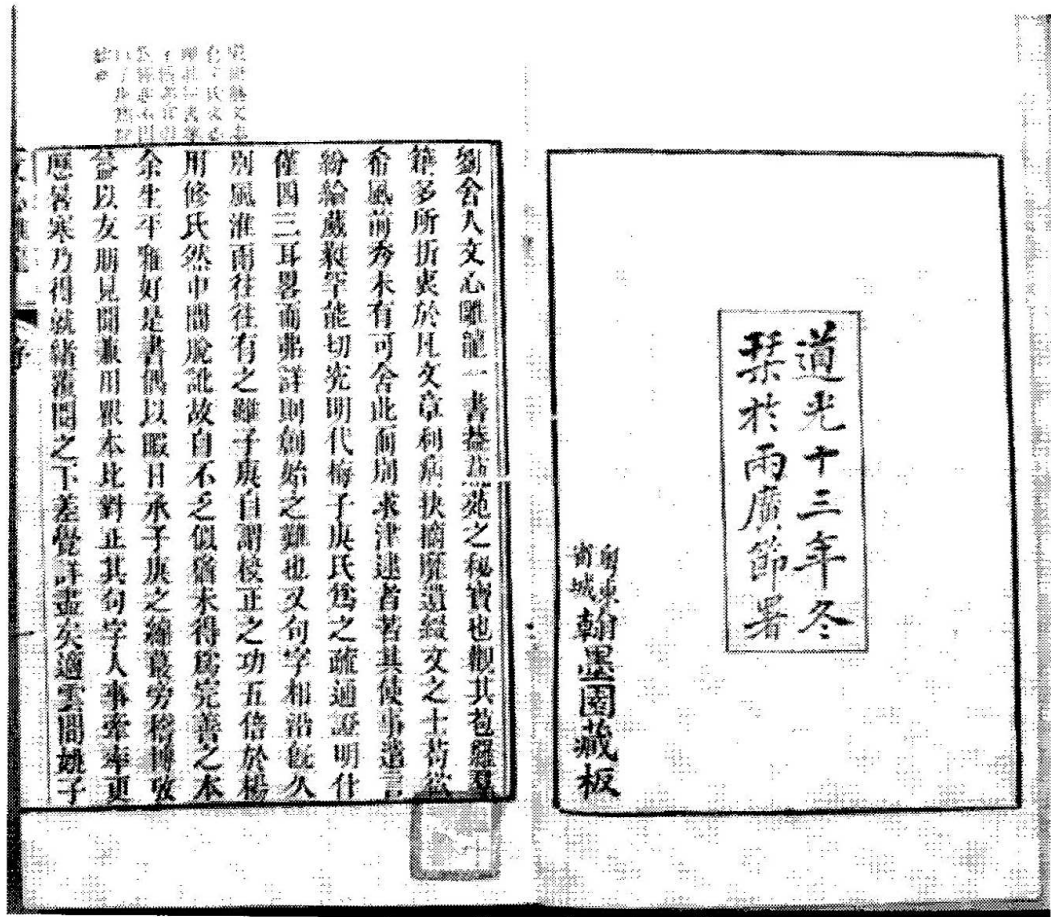 道光十三年冬
栞於兩廣節署
粤東
省城
翰墨園藏板
劉舍人文心雕龍一書蓋藝苑之秘寶也觀其苞羅羣
籍多所折衷於凡文章利病抉摘靡遺綴文之士苟欲
希風前秀未有可舍此而別求津逮者若其使事遣言
紛綸葳蕤罕能切究明代梅子庚氏爲之疏通證明什
僅四三耳畧而弗詳則創始之難也又句字相沿旣久
別風淮雨往往有之雖子庚自謂校正之功五倍於楊
用修氏然中間脫訛故自不乏似猶未得爲完善之本
余生平雅好是書偶以暇日承子庚之緜蕞旁稽博攷
益以友朋見聞兼用眾本比對正其句字人事牽率更
歷暑寒乃得就緒覆閱之下差覺詳盡矣適雲間姚子